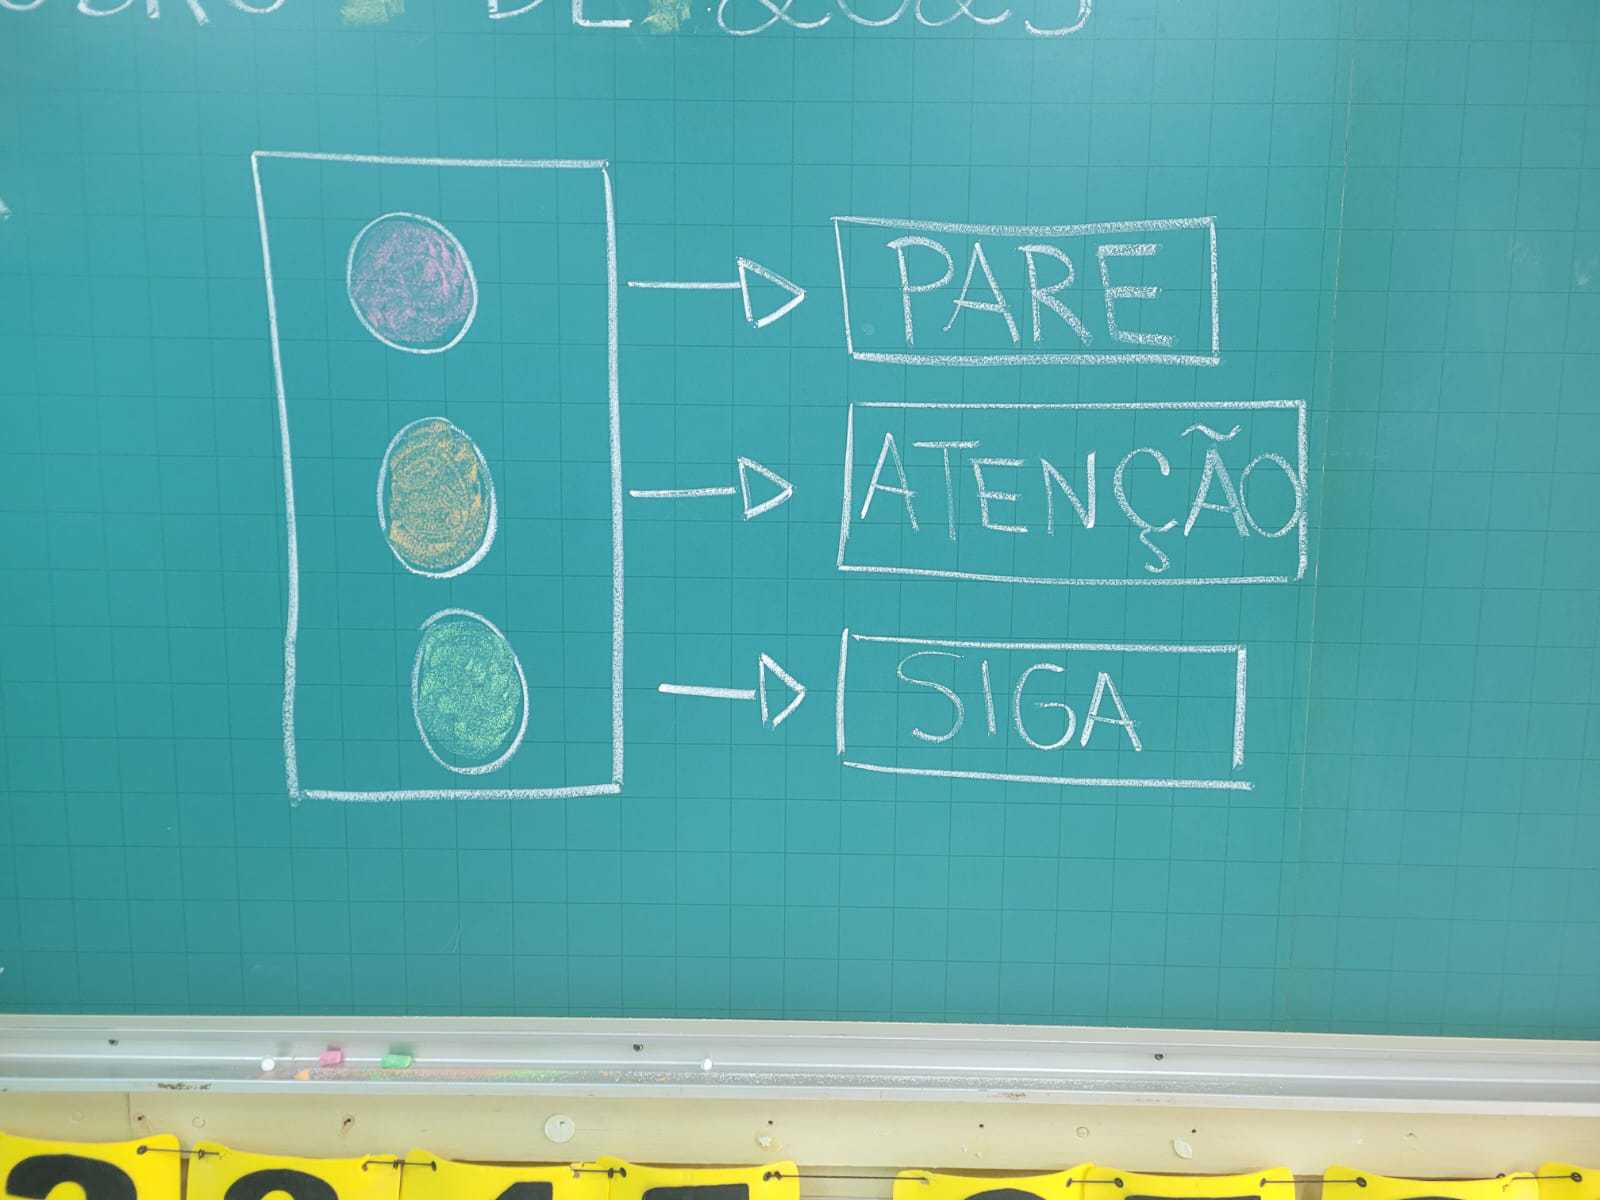 DE 2025
PARE
ATENÇÃO
SIGA